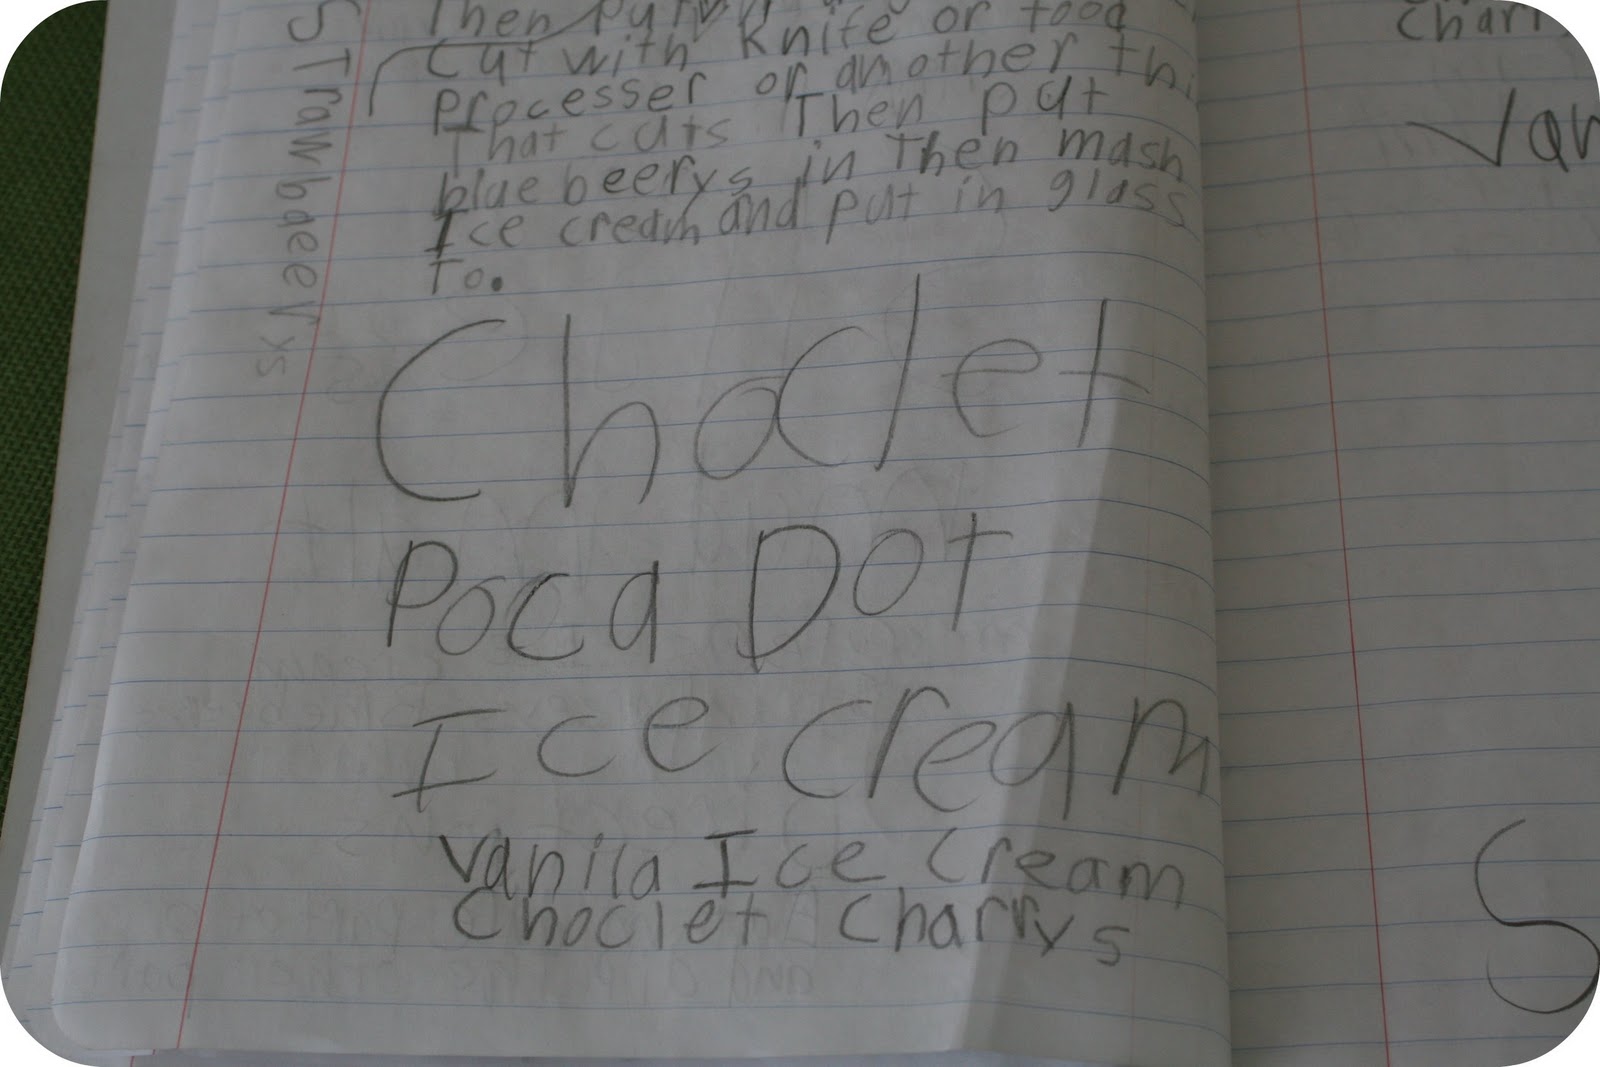 Then put
cut with Knife or food
Processer or another thi
That cuts Then put
blue beerys in Then mash
Ice cream and put in glass
To.
Choclet
Poca Dot
Ice cream
vanila Ice cream
Choclet Charrys
STrawbaeerys
Charr
Van
S